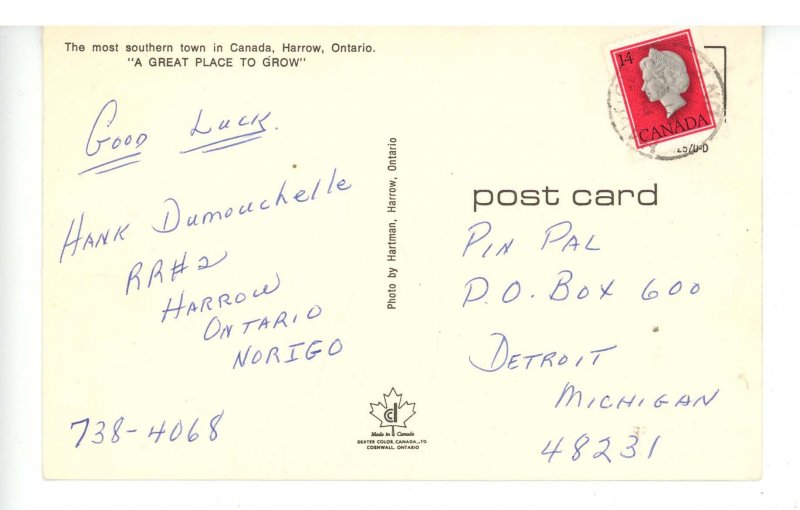 The most southern town in Canada, Harrow, Ontario.
"A GREAT PLACE TO GROW"
Good Luck.
Hank Dumouchelle
RR#2
Harrow
Ontario
NORIGO
738-4068
Photo by Hartman, Harrow, Ontario
Made in Canada
DEXTER COLOR, CANADA, LTD
CORNWALL, ONTARIO
14
CANADA
post card
Pin Pal
P.O. Box 600
Detroit
Michigan
48231